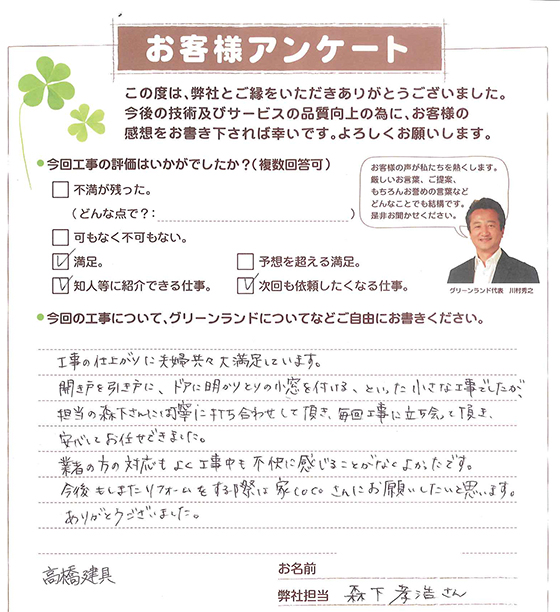 お客様アンケート
この度は、弊社とご縁をいただきありがとうございました。
今後の技術及びサービスの品質向上の為に、お客様の
感想をお書き下されば幸いです。よろしくお願いします。
●今回工事の評価はいかがでしたか？（複数回答可）
不満が残った。
（どんな点で？：　）
可もなく不可もない。
満足。
予想を超える満足。
知人等に紹介できる仕事。
次回も依頼したくなる仕事。
お客様の声が私たちを熱くします。
厳しいお言葉、ご提案、
もちろんお誉めの言葉など
どんなことでも結構です。
是非お聞かせください。
グリーンランド代表　川村秀之
●今回の工事について、グリーンランドについてなどご自由にお書きください。
工事の仕上がりに夫婦共々大満足しています。
開き戸を引き戸に、ドアに明かりとりの小窓を付ける、といった小さな工事でしたが、
担当の森下さんには丁寧に打ち合わせして頂き、毎回工事に立ち会って頂き、
安心してお任せできました。
業者の方の対応もよく工事中も不快に感じることがなくよかったです。
今後もしまたリフォームをする際は家cocoさんにお願いしたいと思います。
ありがとうございました。
高橋建具
お名前
弊社担当　森下孝浩さん